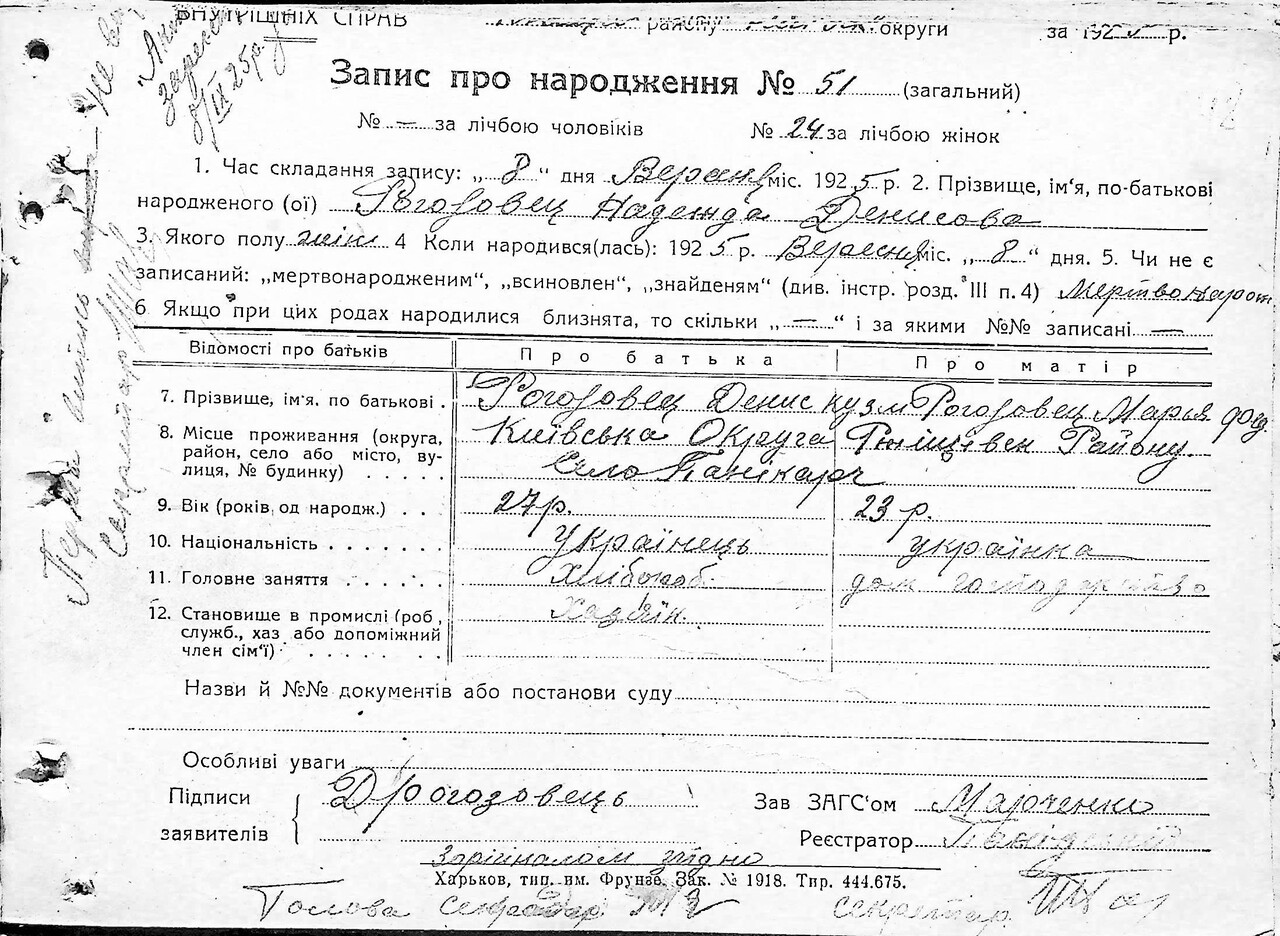 ВНУТРІШНІХ СПРАВ району округи за 192 р.
Запис про народження № 51 (загальний)
№ — за лічбою чоловіків № 24 за лічбою жінок
1. Час складання запису: „ 8 “ дня Вересня міс. 1925 р. 2. Прізвище, ім'я, по-батькові
народженого (ої) Рогозовец Надежда Денисова
3. Якого полу жін 4 Коли народився(лась): 1925 р. Вересня міс. „ 8 “ дня. 5. Чи не є
записаний: „мертвонародженим“, „всиновлен“, „знайденям“ (див. інстр. розд. III п. 4) Мертвонарот
6 Якщо при цих родах народилися близнята, то скільки „ — “ і за якими №№ записані —
Відомості про батьків Про батька Про матір
7. Прізвище, ім'я, по батькові . Рогозовец Денис кузм Рогозовец Марья
8. Місце проживання (округа, Київська Округа Району
район, село або місто, ву- село
лиця, № будинку) . . . . .
9. Вік (років од народж.) . . . 27 р. 23 р.
10. Національність . . . . . . . Українець українка
11. Головне заняття . . . . . Хлібороб. дом господарство
12. Становище в промислі (роб., Хазяїн.
служб., хаз або допоміжний
член сім'ї) . . . . . . . .
Назви й №№ документів або постанови суду
Особливі уваги
Підписи Д Рогозовець Зав ЗАГС'ом Марченко
заявителів Реєстратор
З орігіналом згідно
Харьков, тип. им. Фрунзе. Зак. № 1918. Тир. 444.675.
Голова секретар.